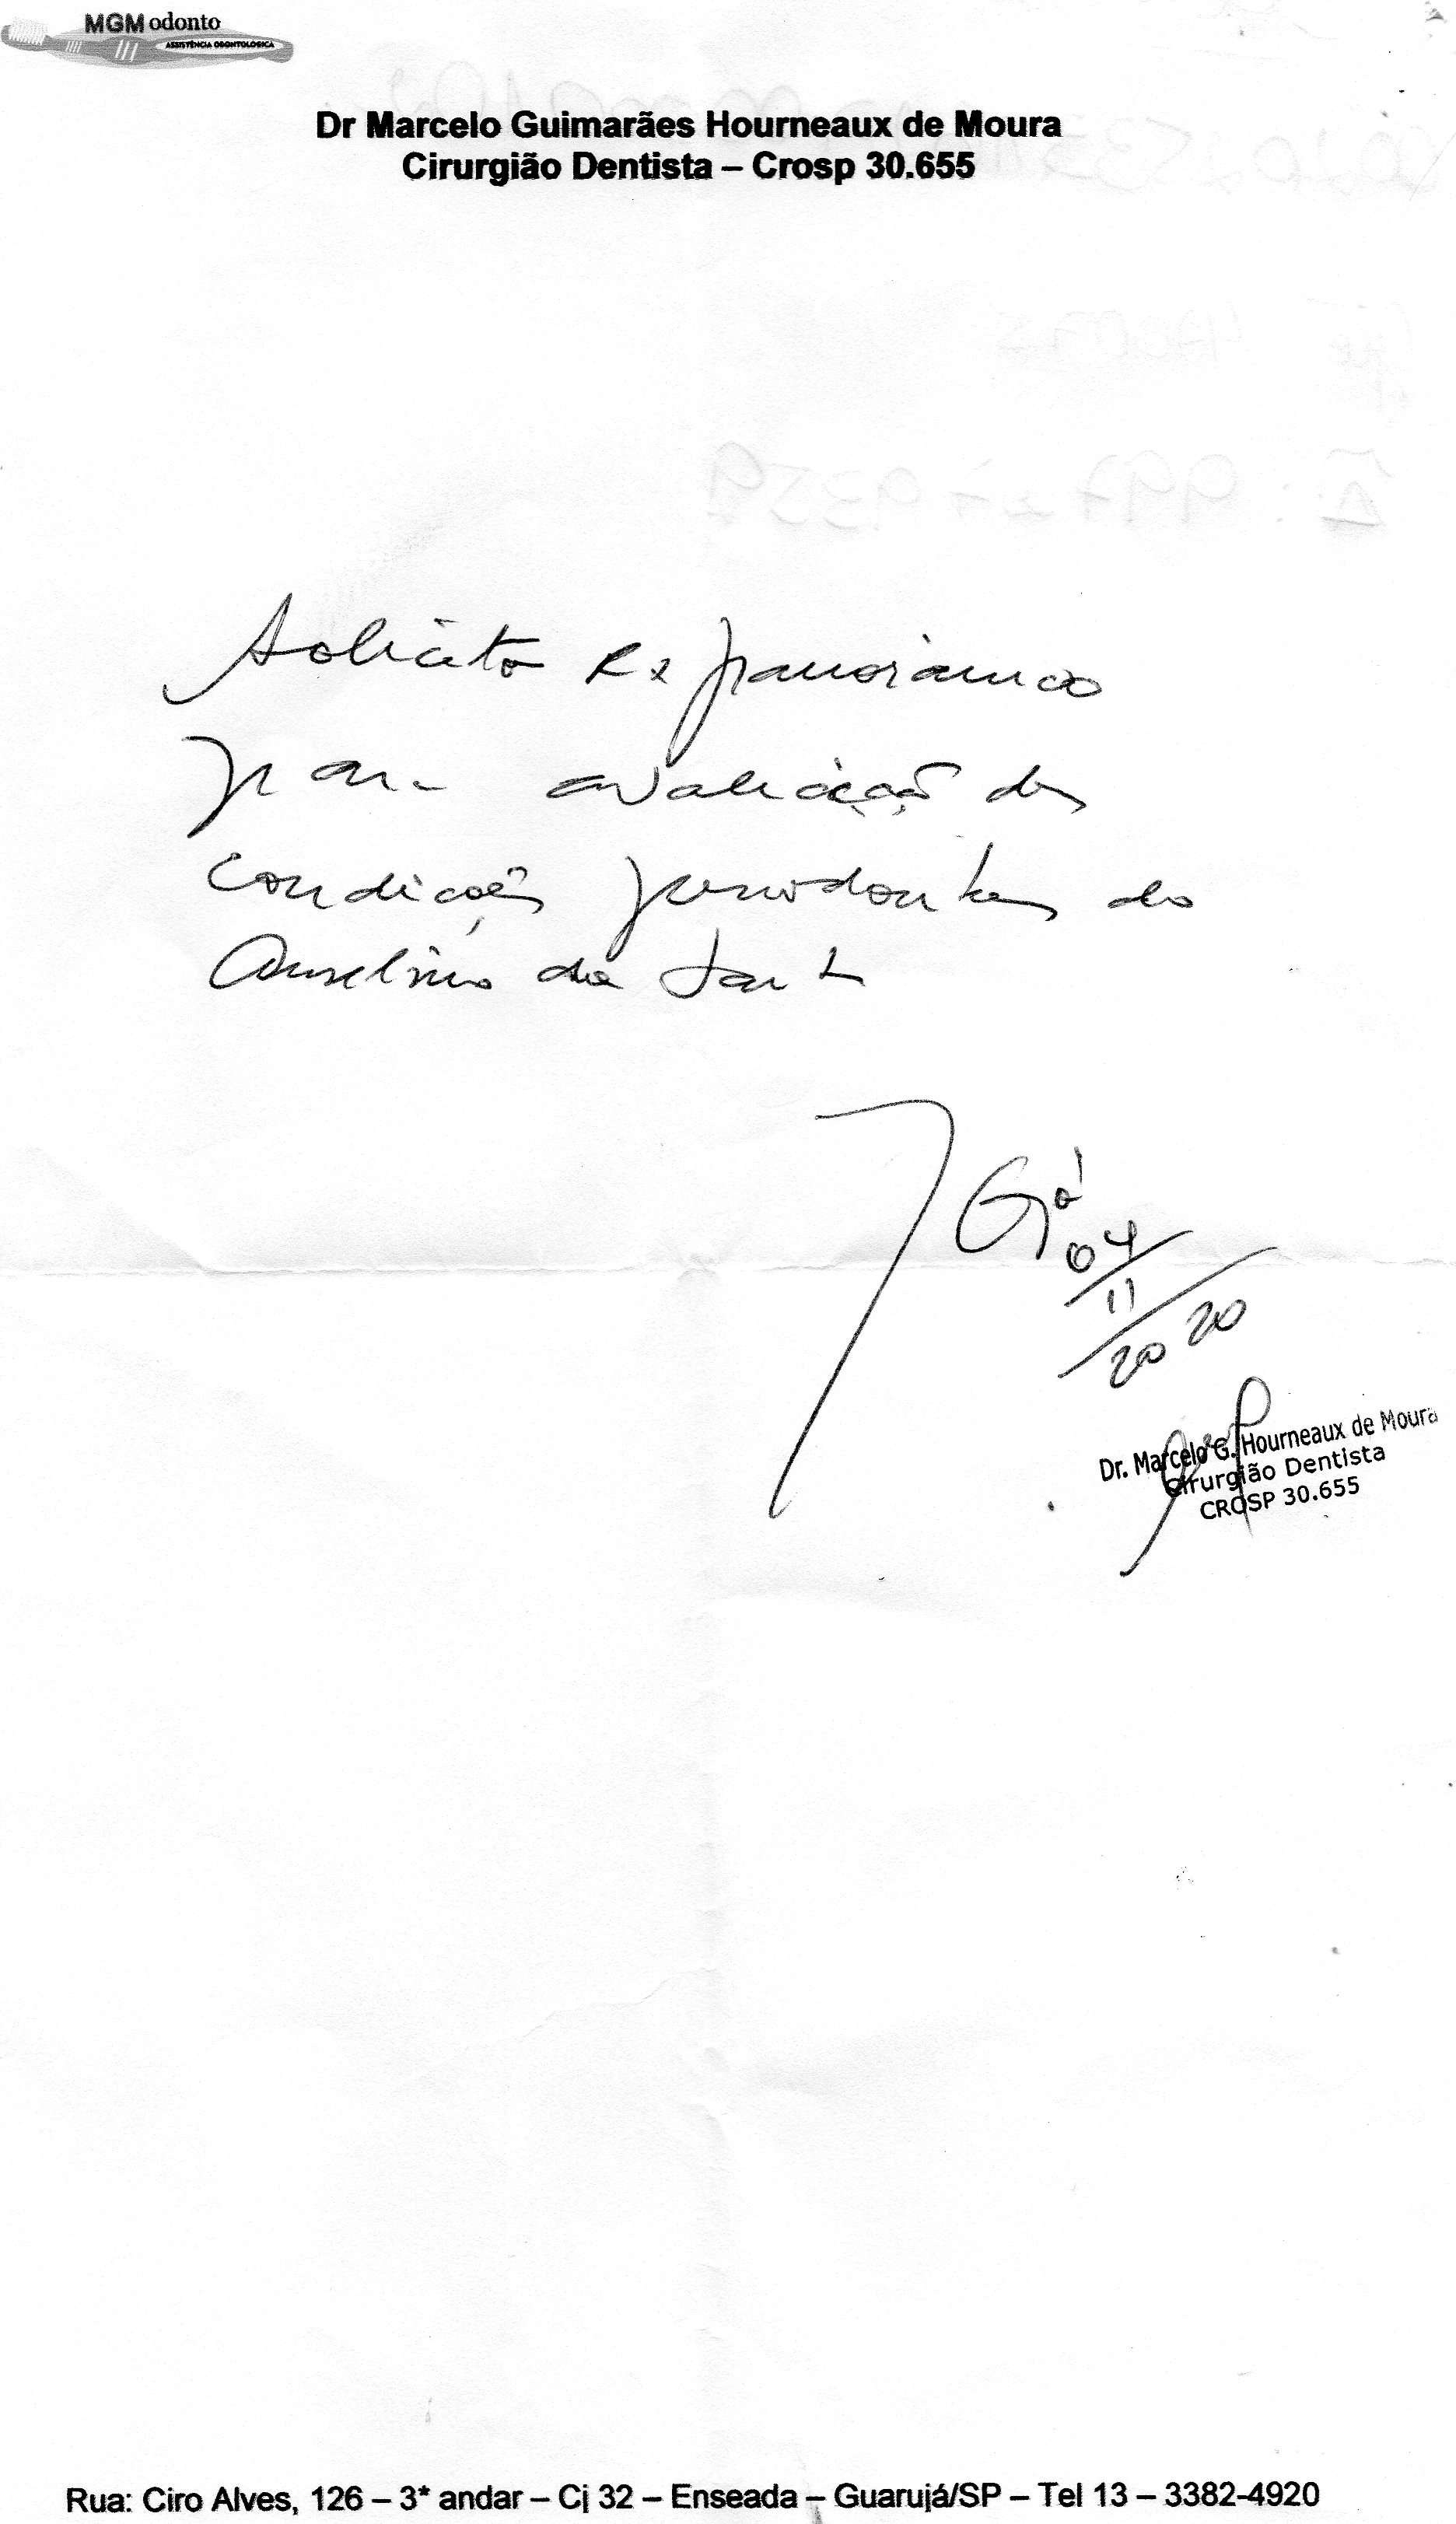 MGM odonto
ASSISTÊNCIA ODONTOLÓGICA
Dr Marcelo Guimarães Hourneaux de Moura
Cirurgião Dentista – Crosp 30.655
Solicito Rx panorâmico
para avaliação das
condições do
Anselmo da
Gjá
04/11/2020
Dr. Marcelo G. Hourneaux de Moura
Cirurgião Dentista
CROSP 30.655
Rua: Ciro Alves, 126 – 3* andar – Cj 32 – Enseada – Guarujá/SP – Tel 13 – 3382-4920